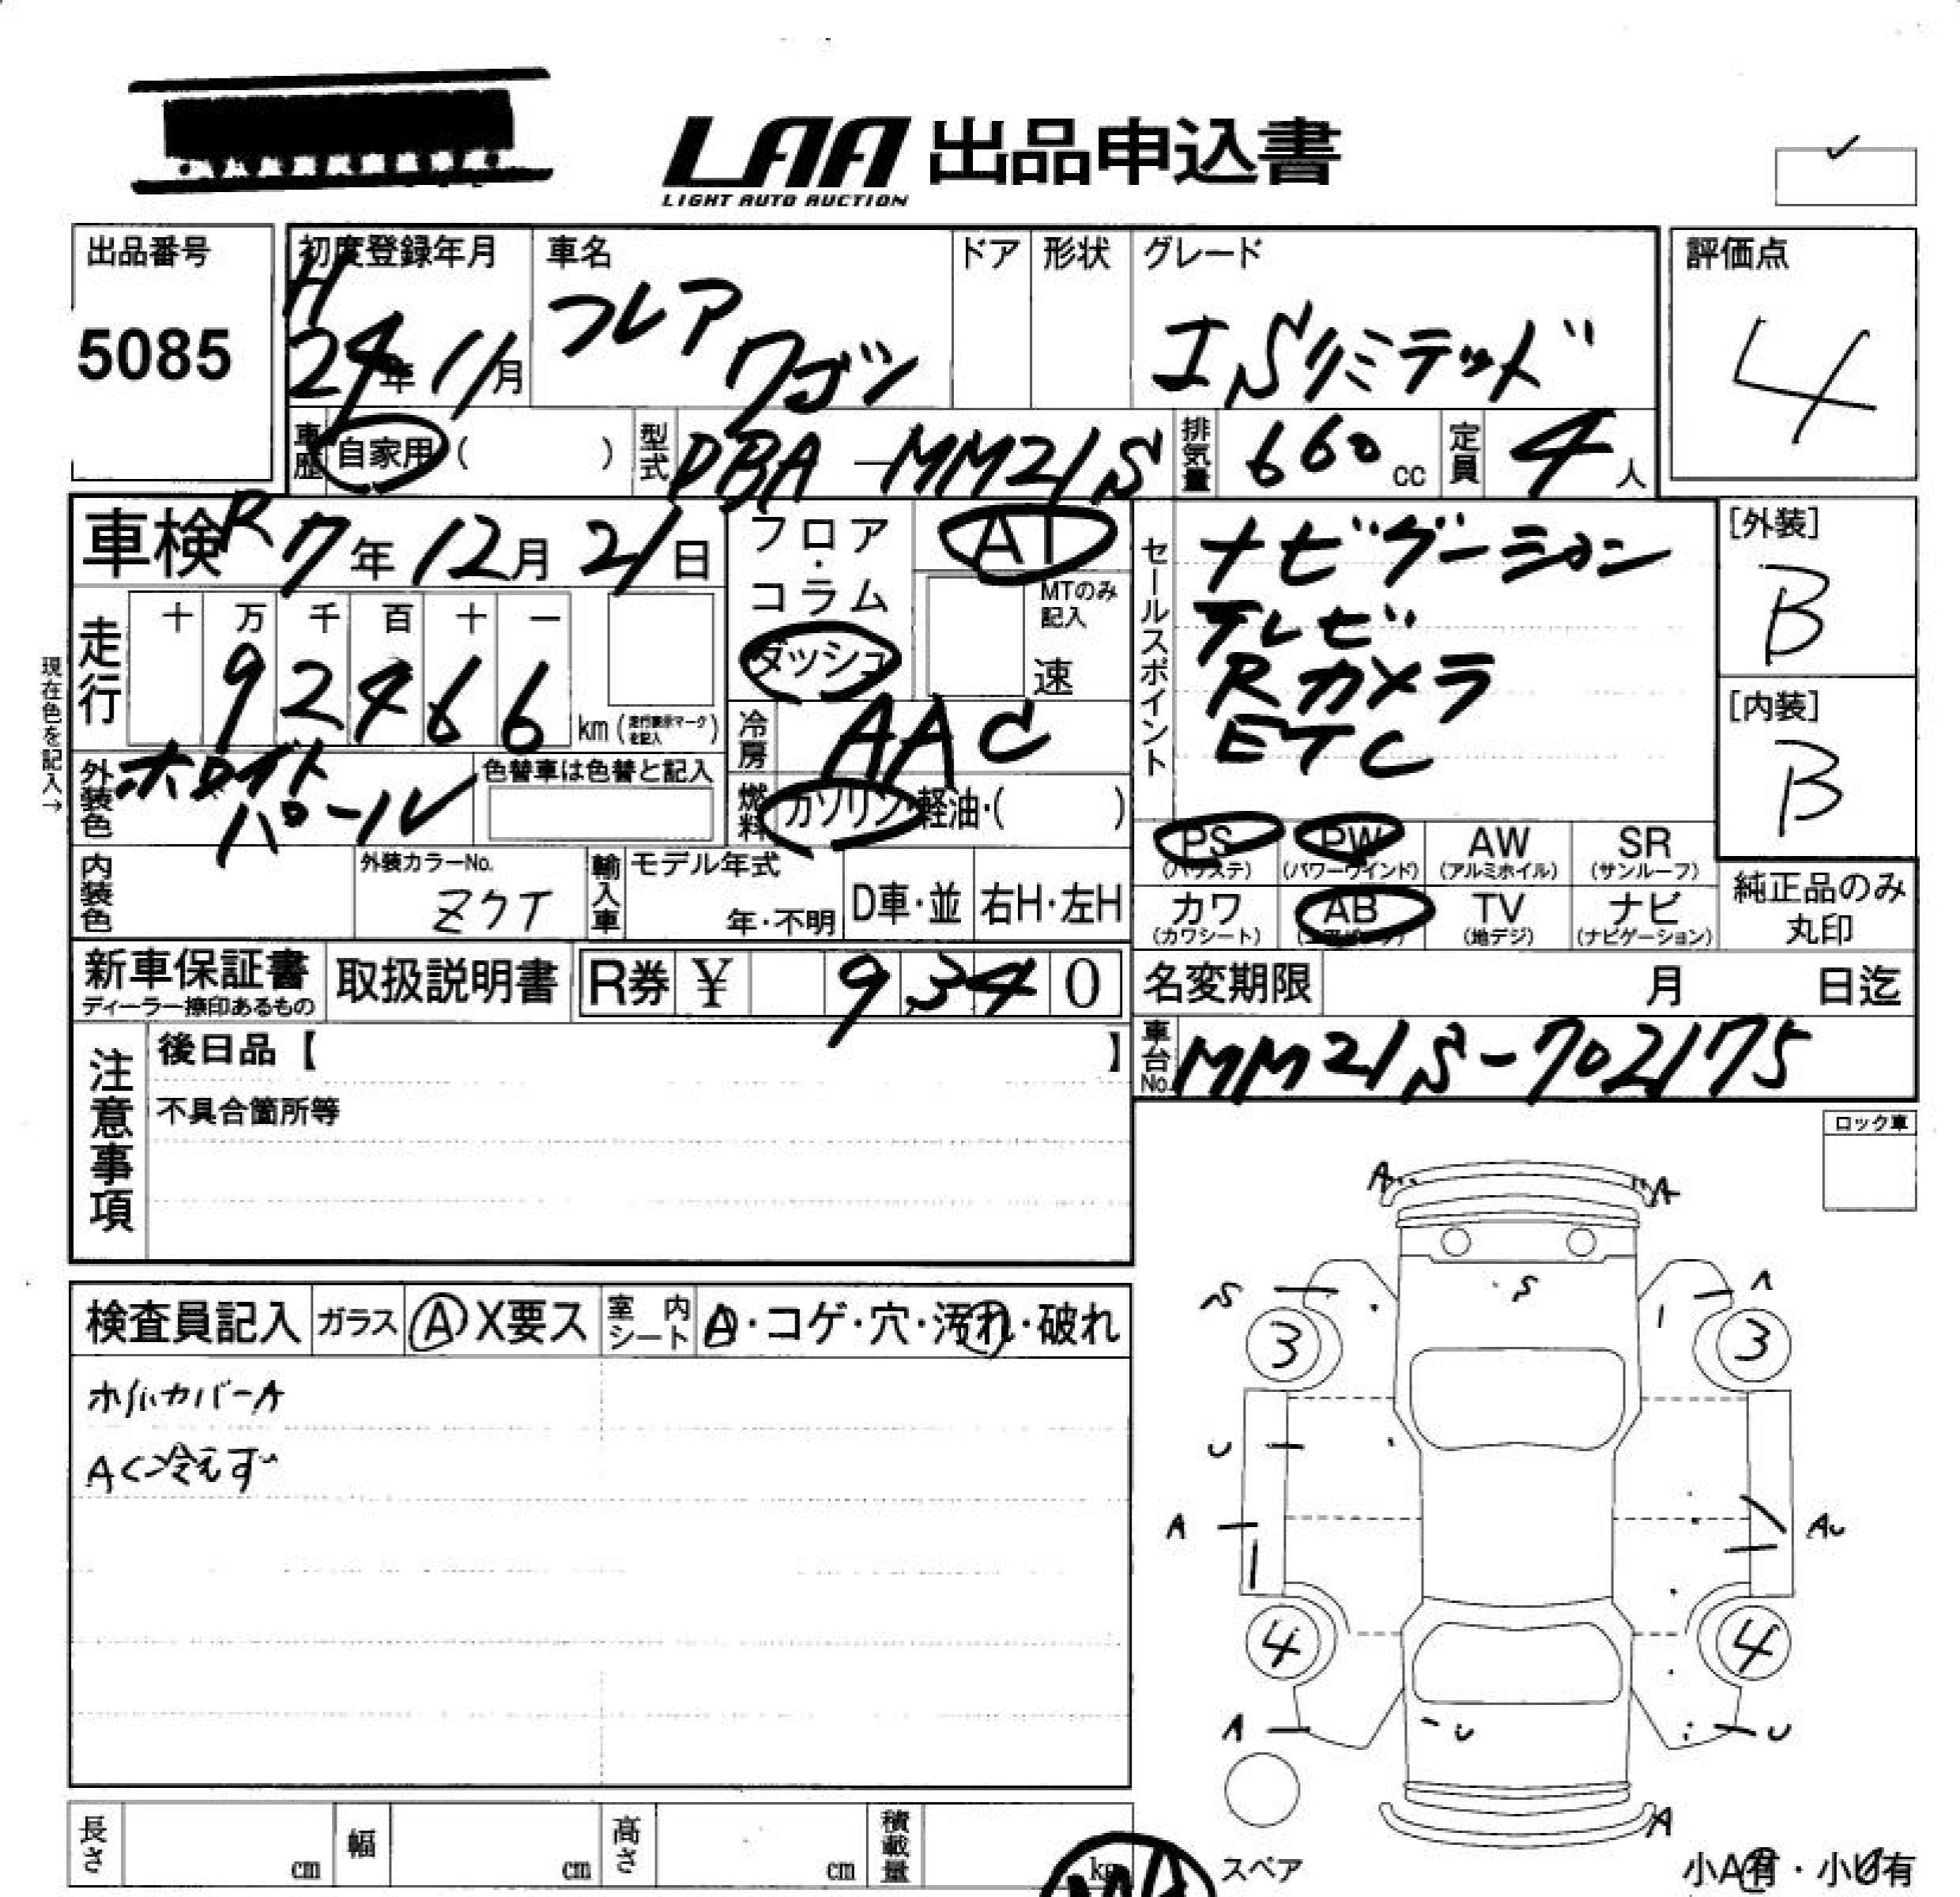 LAA 出品申込書
LIGHT AUTO AUCTION
出品番号
5085
初度登録年月
H
24年 11月
車名
フレア
ワゴン
ドア
形状
グレード
エSリミテッド
評価点
4
車歴
自家用 ( )
型式
DBA-MM21S
排気量
660 cc
定員
4 人
車検 R 7年 12月 21日
フロア・コラム
ダッシュ
AT
MTのみ記入
速
セールスポイント
ナビゲーション
テレビ
Rカメラ
ETC
[外装]
B
[内装]
B
現在色を記入→
走行
十 万 千 百 十 一
9 2 4 6 6
km (走行表示マークを記入)
冷房
AAC
外装色
ホワイト
パール
色替車は色替と記入
燃料
ガソリン・軽油・( )
PS
(パワステ)
PW
(パワーウインド)
AW
(アルミホイル)
SR
(サンルーフ)
内装色
外装カラーNo.
Z7T
輸入車
モデル年式
年・不明
D車・並
右H・左H
カワ
(カワシート)
AB
(エアバック)
TV
(地デジ)
ナビ
(ナビゲーション)
純正品のみ
丸印
新車保証書
ディーラー捺印あるもの
取扱説明書
R券 ¥ 9 3 4 0
名変期限
月 日迄
注意事項
後日品【 】
不具合箇所等
車台No.
MM21S-702175
ロック車
A A
S S A
3 3
U
A AU
4 4
A U U
A
検査員記入
ガラス
A X要ス
室内シート
A・コゲ・穴・汚れ・破れ
ホイルカバーA
AC冷えず
長さ cm
幅 cm
高さ cm
積載量 kg
スペア
小A有・小U有